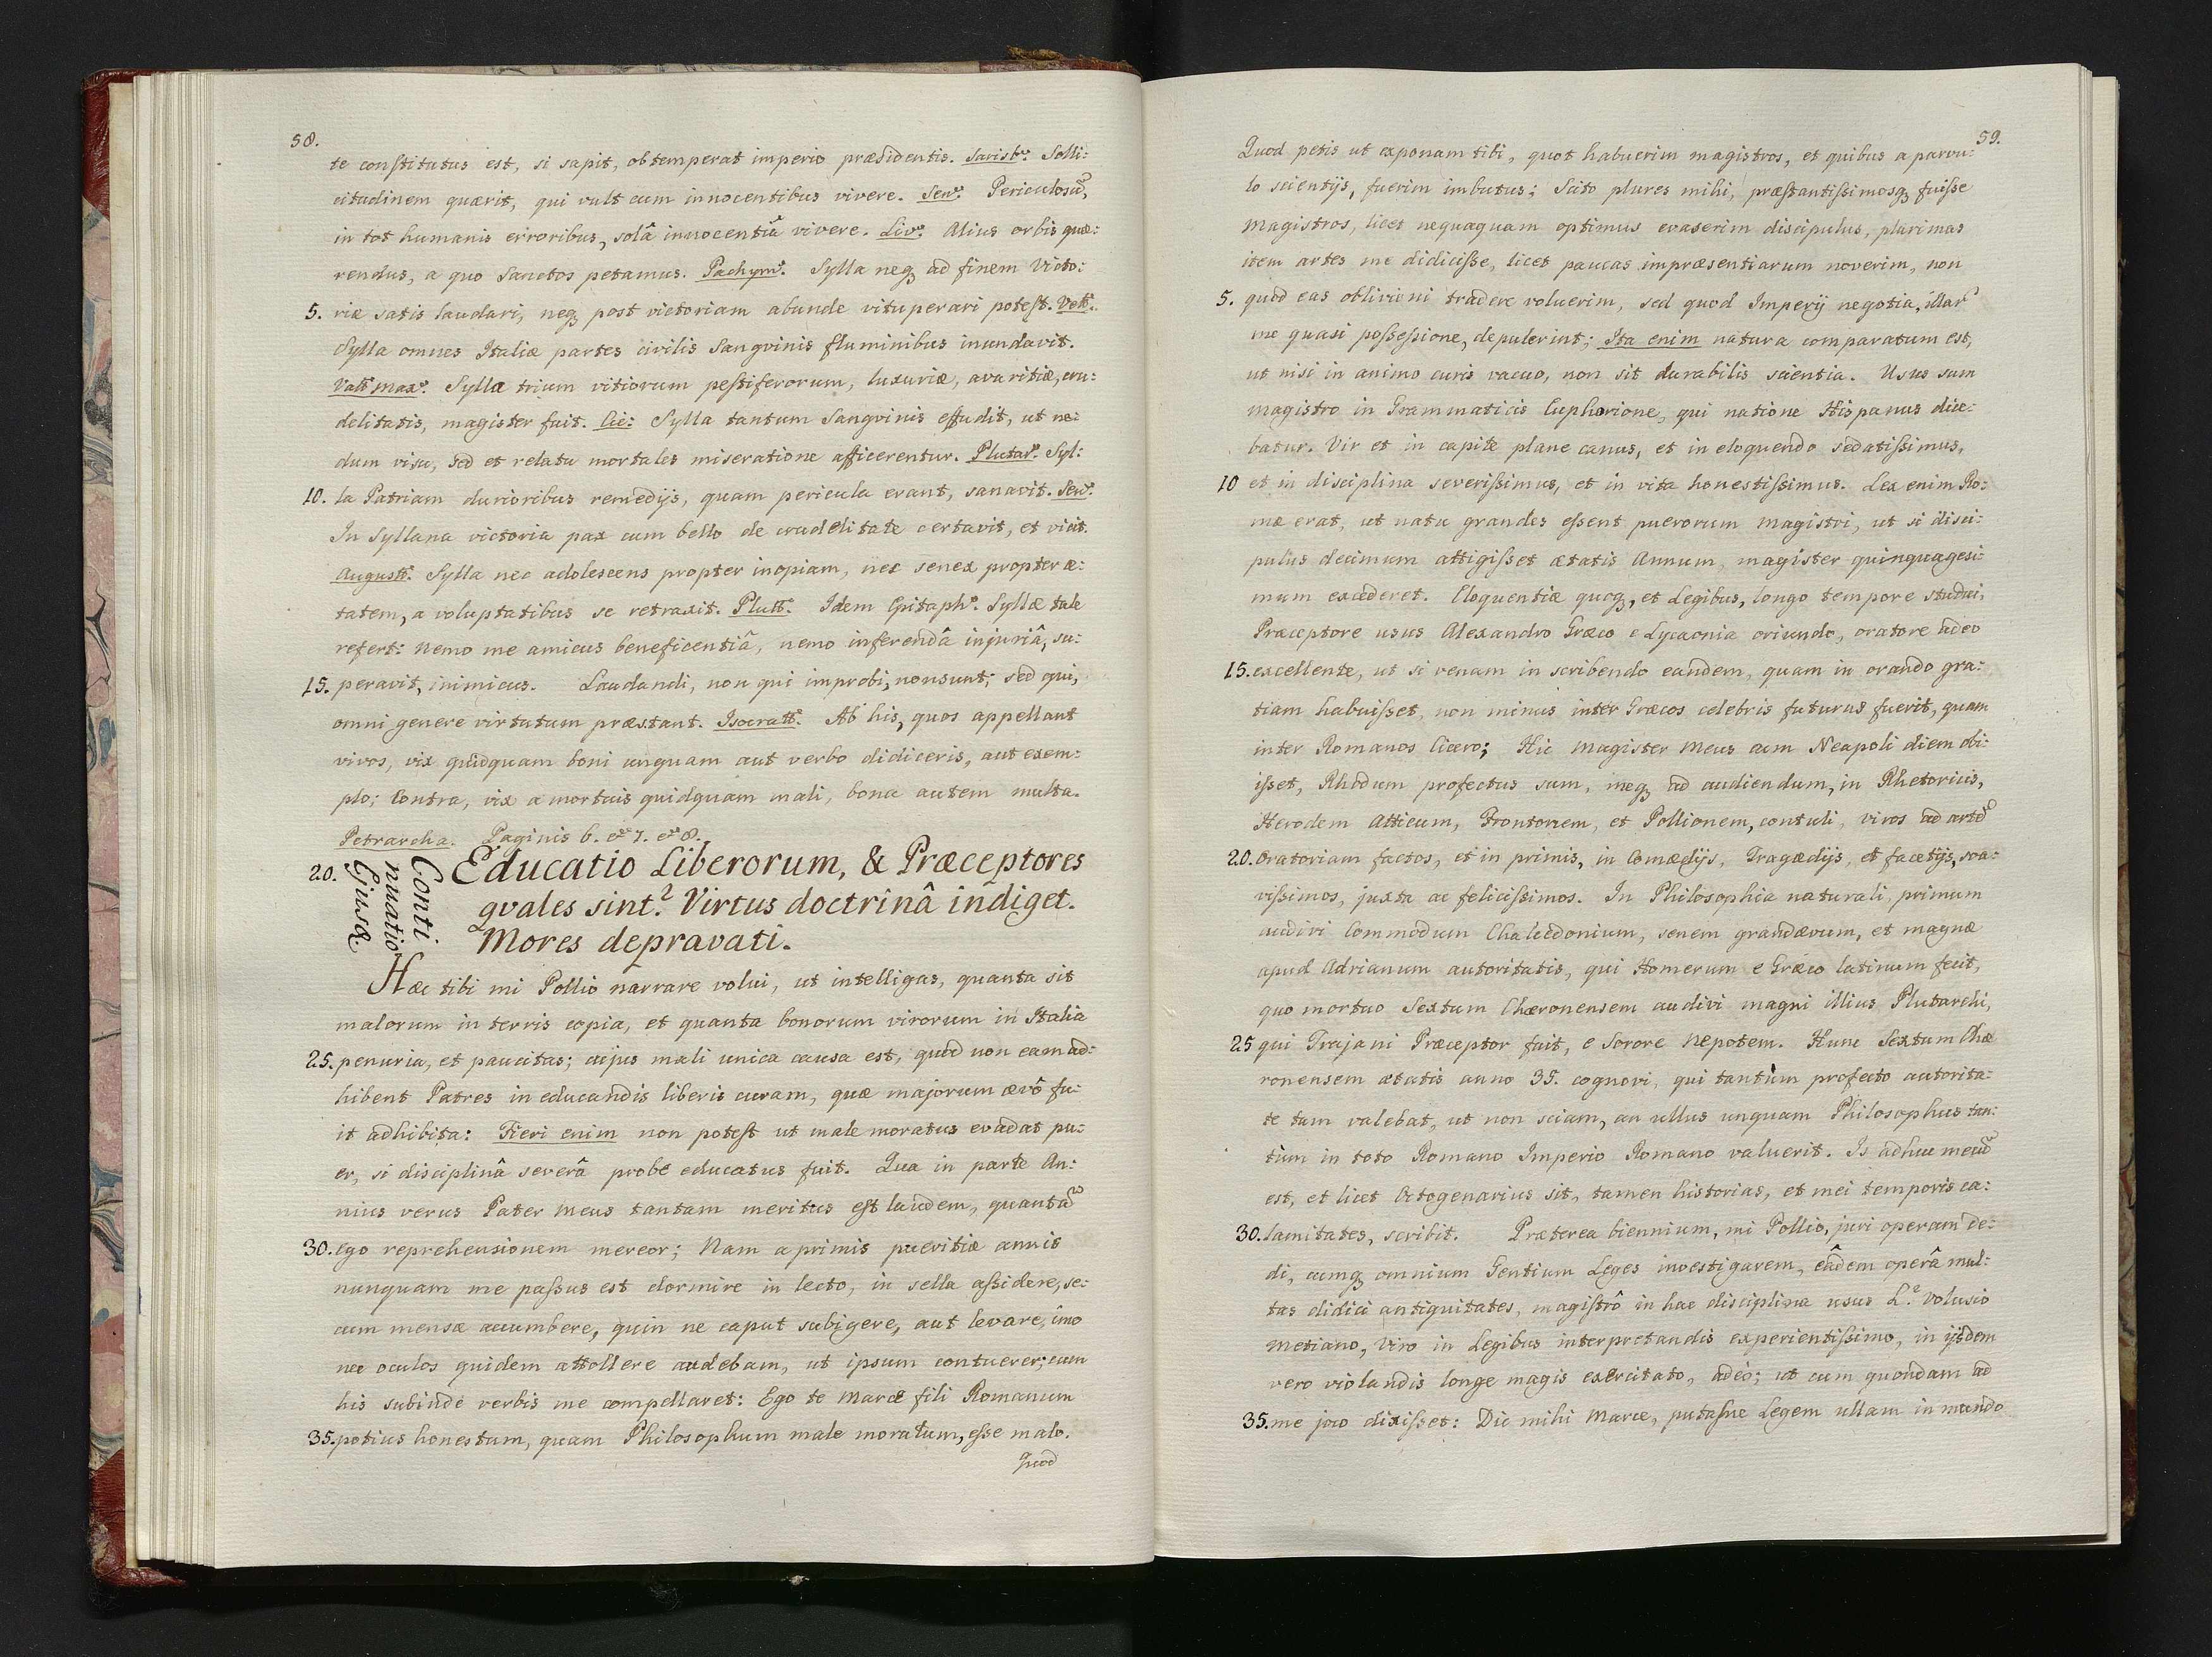 58.
te conſtitutus est, si sapit, obtemperat imperio præsidentis. Sarisb: Solli:
citudinem quærit, qui vult cum innocentibus vivere. Sen: Periculosū,
in tot humanis erroribus, solâ innocentiâ vivere. Liv: Alius orbis quæ:
rendus, a quo Sanctos petamus. Pachym: Sylla neq, ad finem Victo:
5. riæ satis laudari, neq, post victoriam abunde vituperari poteſt. Vell:
Sylla omnes Italiæ partes civilis Sangvinis fluminibus inundavit.
Vall max: Syllæ trium vitiorum peſtiferorum, luxuriæ, avaritiæ, cru:
delitatis, magister fuit. Cic: Sylla tantum Sangvinis effudit, ut ne:
dum visu, sed et relatu mortales miseratione afficerentur. Plutar: Syl:
10. la Patriam durioribus remedijs, quam pericula erant, sanavit. Sen:
In Syllana victoria pax cum bello de crudelitate certavit, et vicit.
August: Sylla nec adolescens propter inopiam, nec senex propter æ:
tatem, a voluptatibus se retraxit. Plutt: Idem Epitaph: Syllæ tale
refert: Nemo me amicus beneficentiâ, nemo inferendâ injuriâ, su:
15. peravit, inimicus. Laudandi, non qui improbi, non sunt; sed qui,
omni genere virtutum præstant. Isocratt: Ab his, quos appellant
vivos, vix quidquam boni unquam aut verbo didiceris, aut exem:
plo; Contra, vix a mortuis quidquam mali, bona autem multa.
Petrarcha. Paginis 6. et 7. et 8.
20. Conti nuatio Ejusd.
Educatio Liberorum, & Præceptores
qvales sint? Virtus doctrinâ indiget.
Mores depravati.
Hæc tibi mi Pollio narrare volui, ut intelligas, quanta sit
malorum in terris copia, et quanta bonorum virorum in Italia
25. penuria, et paucitas; cujus mali unica causa est, quod non eam ad:
hibent Patres in educandis liberis curam, quæ majorum ævô fu:
it adhibita: Fieri enim non poteſt ut male moratus evadat pu:
er, si disciplinâ severâ probe educatus fuit. Qua in parte An:
nius verus Pater meus tantam meritus eſt laudem, quantā
30. Ego reprehensionem mereor; Nam a primis pueritiæ annis
nunquam me paſsus est dormire in lecto, in sella aſsidere, se:
cum mensæ accumbere, quin ne caput subigere, aut levare, imo
nec oculos quidem attollere audebam, ut ipsum contuerer; cum
his subinde verbis me compellaret: Ego te Marce fili Romanum
35. potius honestum, quam Philosophum male moratum, eſse malo.
Quod
59.
Quod petis ut exponam tibi, quot habuerim magistros, et quibus a parvu:
lo scientijs, fuerim imbutus; Scito plures mihi, præſtantiſsimosq, fuiſse
Magistros, licet nequaquam optimus evaserim discipulus, plurimas
item artes me didiciſse, licet paucas impræsentiarum noverim, non
5. quod eas oblivioni tradere voluerim, sed quod Imperij negotia, illar
me quasi poſseſsione, depulerint; Ita enim natura comparatum est,
ut nisi in animo curis vacuo, non sit durabilis scientia. Usus sum
magistro in Grammaticis Euphorione, qui natione Hispanus dice:
batur. Vir et in capite plane canus, et in eloquendo sedatiſsimus,
10 et in disciplina severiſsimus, et in vita honestiſsimus. Lex enim Ro:
mæ erat, ut natu grandes eſsent puerorum magistri, ut si disci:
pulus decimum attigiſset ætatis Annum, magister quinquagesi:
mum excederet. Eloquentiæ quoq, et Legibus, longo tempore studui,
Præceptore usus Alexandro Græco e Lycaonia oriundo, oratore adeo
15. excellente, ut si venam in scribendo eandem, quam in orando gra:
tiam habuiſset, non minus inter Græcos celebris futurus fuerit, quam
inter Romanos Cicero; Hic Magister Meus cum Neapoli diem obi:
iſset, Rhodum profectus sum, meq, ad audiendum, in Rhetoricis,
Herodem Atticum, Frontonem, et Pollionem, contuli, viros ad artē
20. Oratoriam factos, et in primis, in Comædijs, Tragædijs, et facetijs, sua:
viſsimos, juxta ac feliciſsimos. In Philosophia naturali, primum
audivi Commodum Chalcedonium, senem grandævum, et magnæ
apud Adrianum autoritatis, qui Homerum e Græco latinum fecit,
quo mortuo Sextum Chæronensem audivi magni illius Plutarchi,
25 qui Trajani Præceptor fuit, e Sorore Nepotem. Hunc Sextum Chæ
ronensem ætatis anno 35. cognovi, qui tantùm profecto autorita:
te tum valebat, ut non sciam, an ullus unquam Philosophus tan:
tùm in toto Romano Imperio Romano valuerit. Is adhuc mecū
est, et licet Octogenarius sit, tamen historias, et mei temporis ca:
30. lamitates, scribit. Præterea biennium, mi Pollio, juri operam de:
di, cumq, omnium Gentium Leges investigarem, eâdem operâ mul:
tas didici antiquitates, magiſtrô in hac disciplina usus L: Volusio
Metiano, Viro in Legibus interpretandis experientiſsimo, in ijsdem
vero violandis longe magis exercitato, adeò; ut cum quondam ad
35. me joco dixiſset: Dic mihi Marce, putaſne Legem ullam in mundo